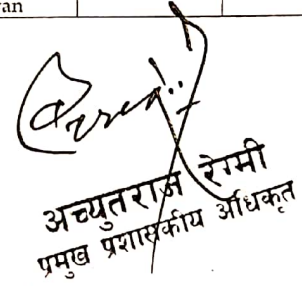 an
अच्युतराज रेग्मी
प्रमुख प्रशासकीय अधिकृत